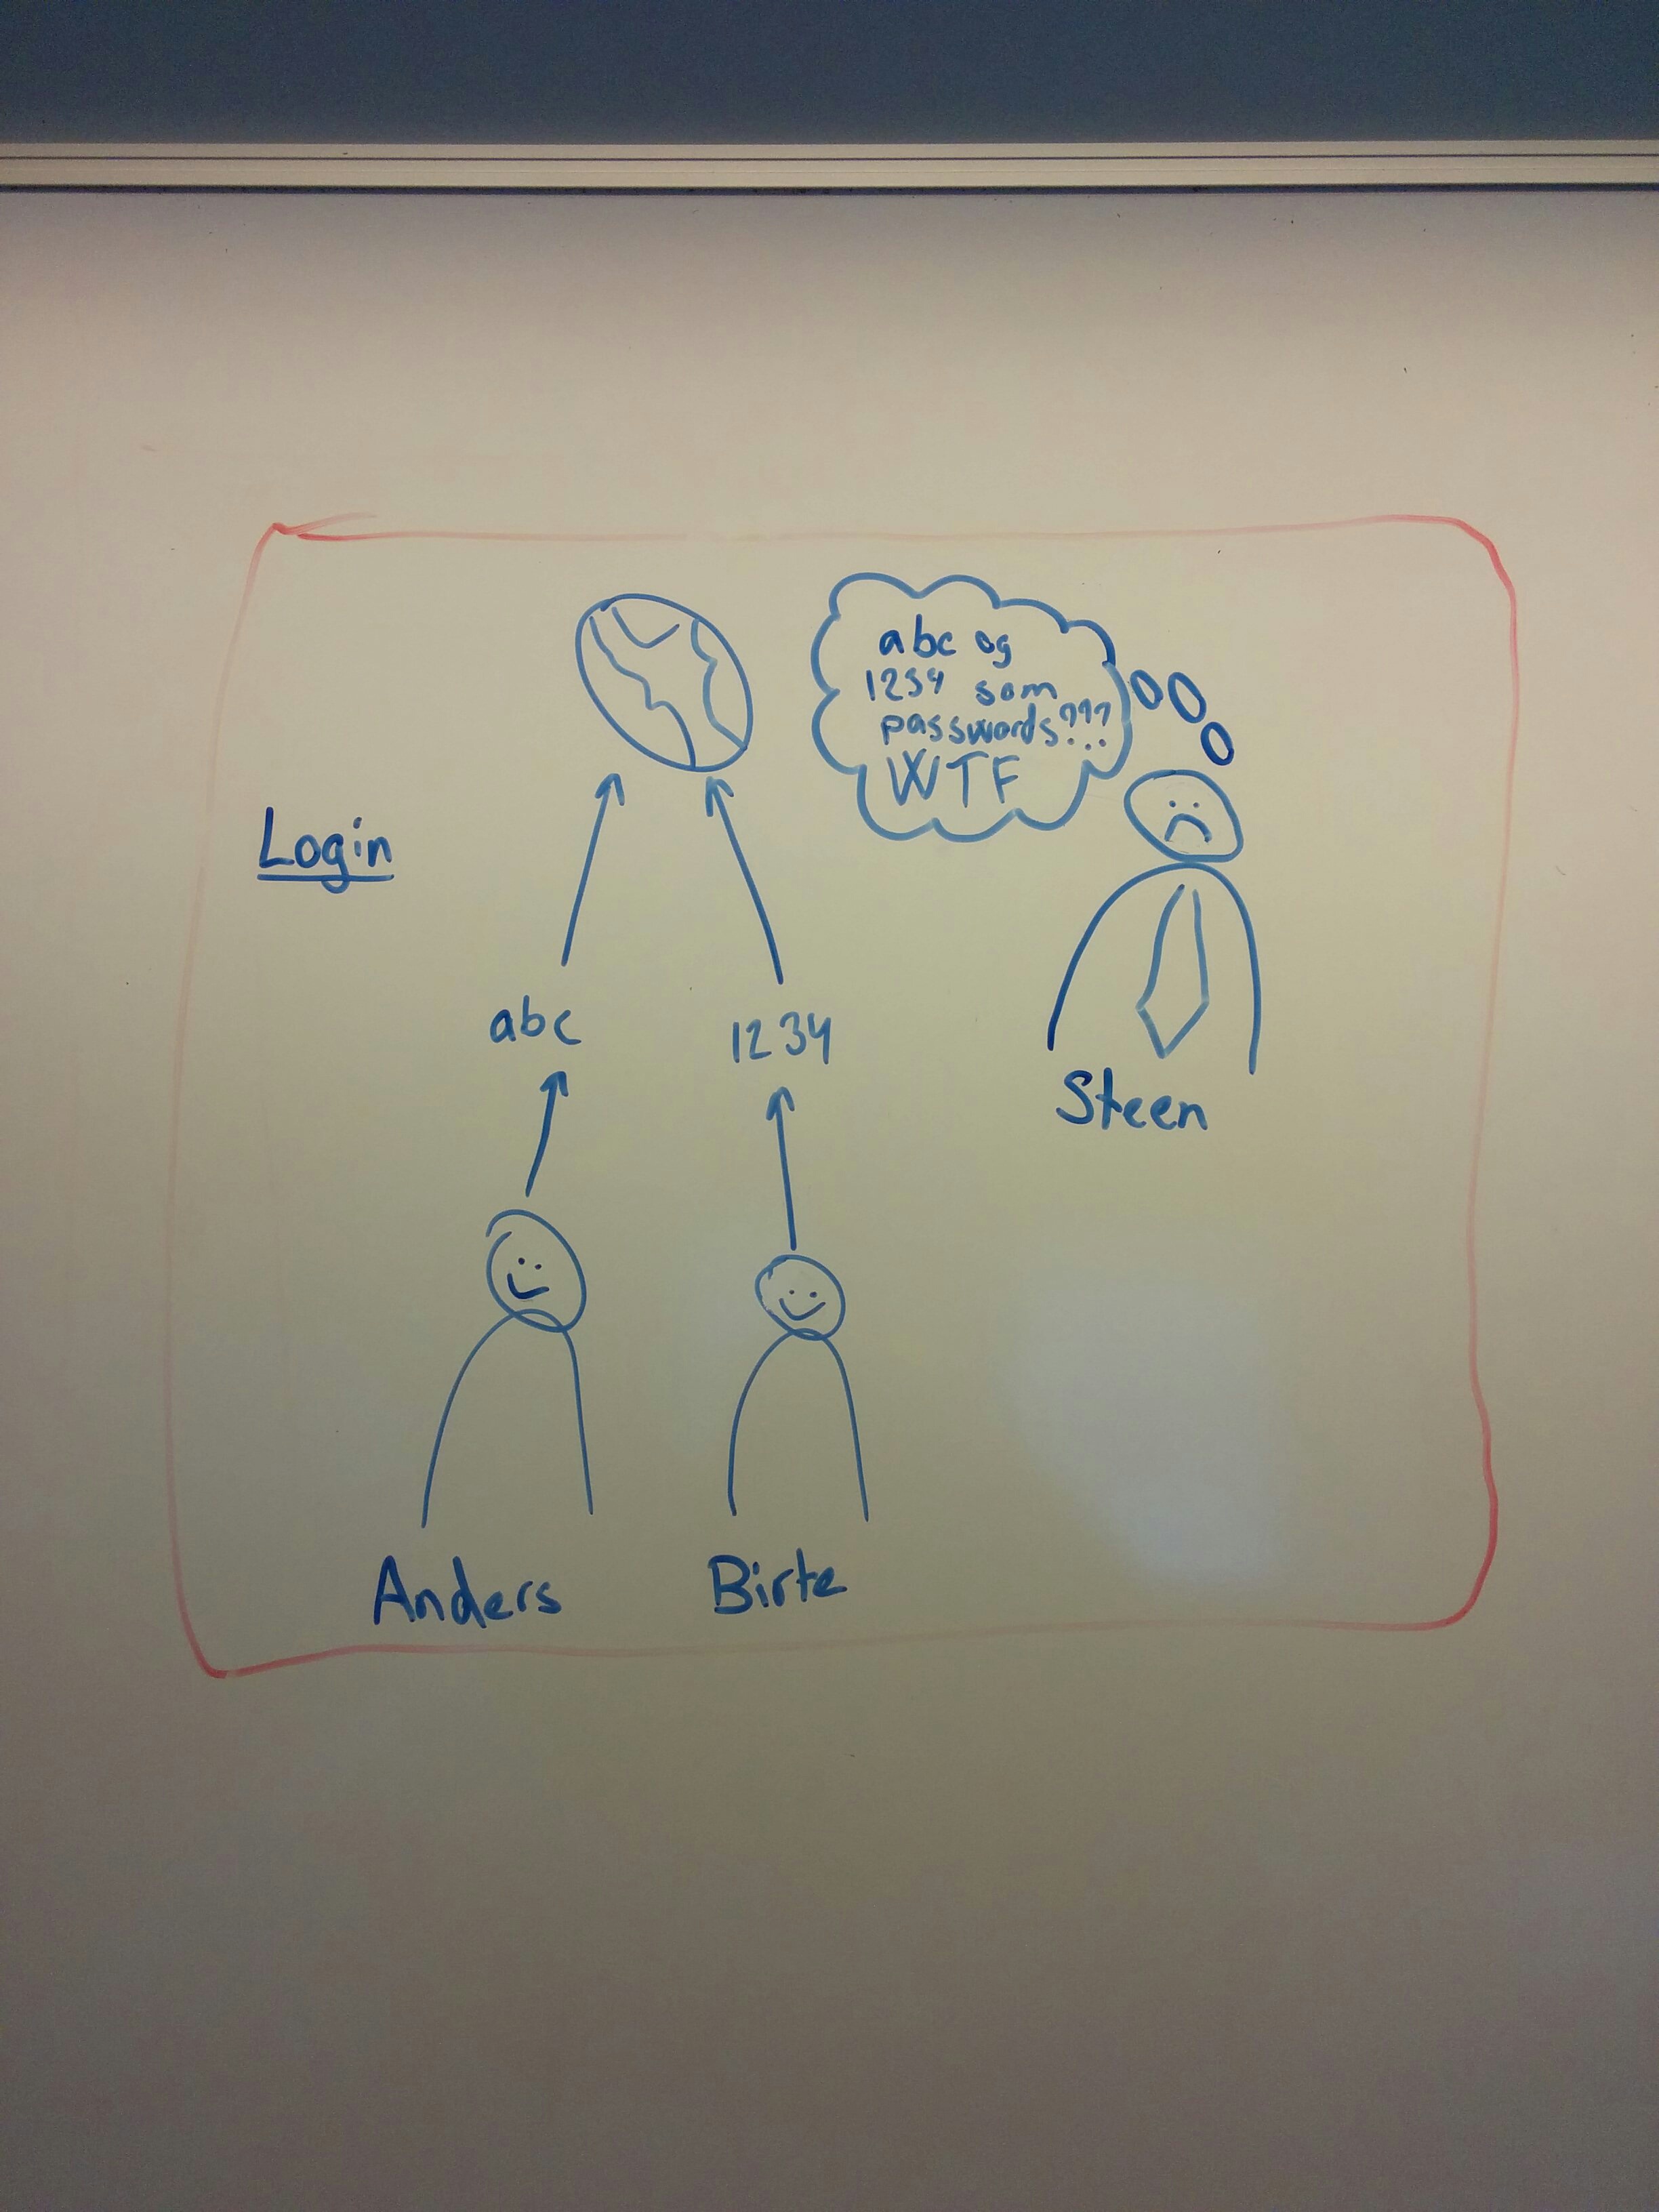 abc og
1234 som
passwords???
WTF
Login
abc
1234
Steen
Anders
Birte